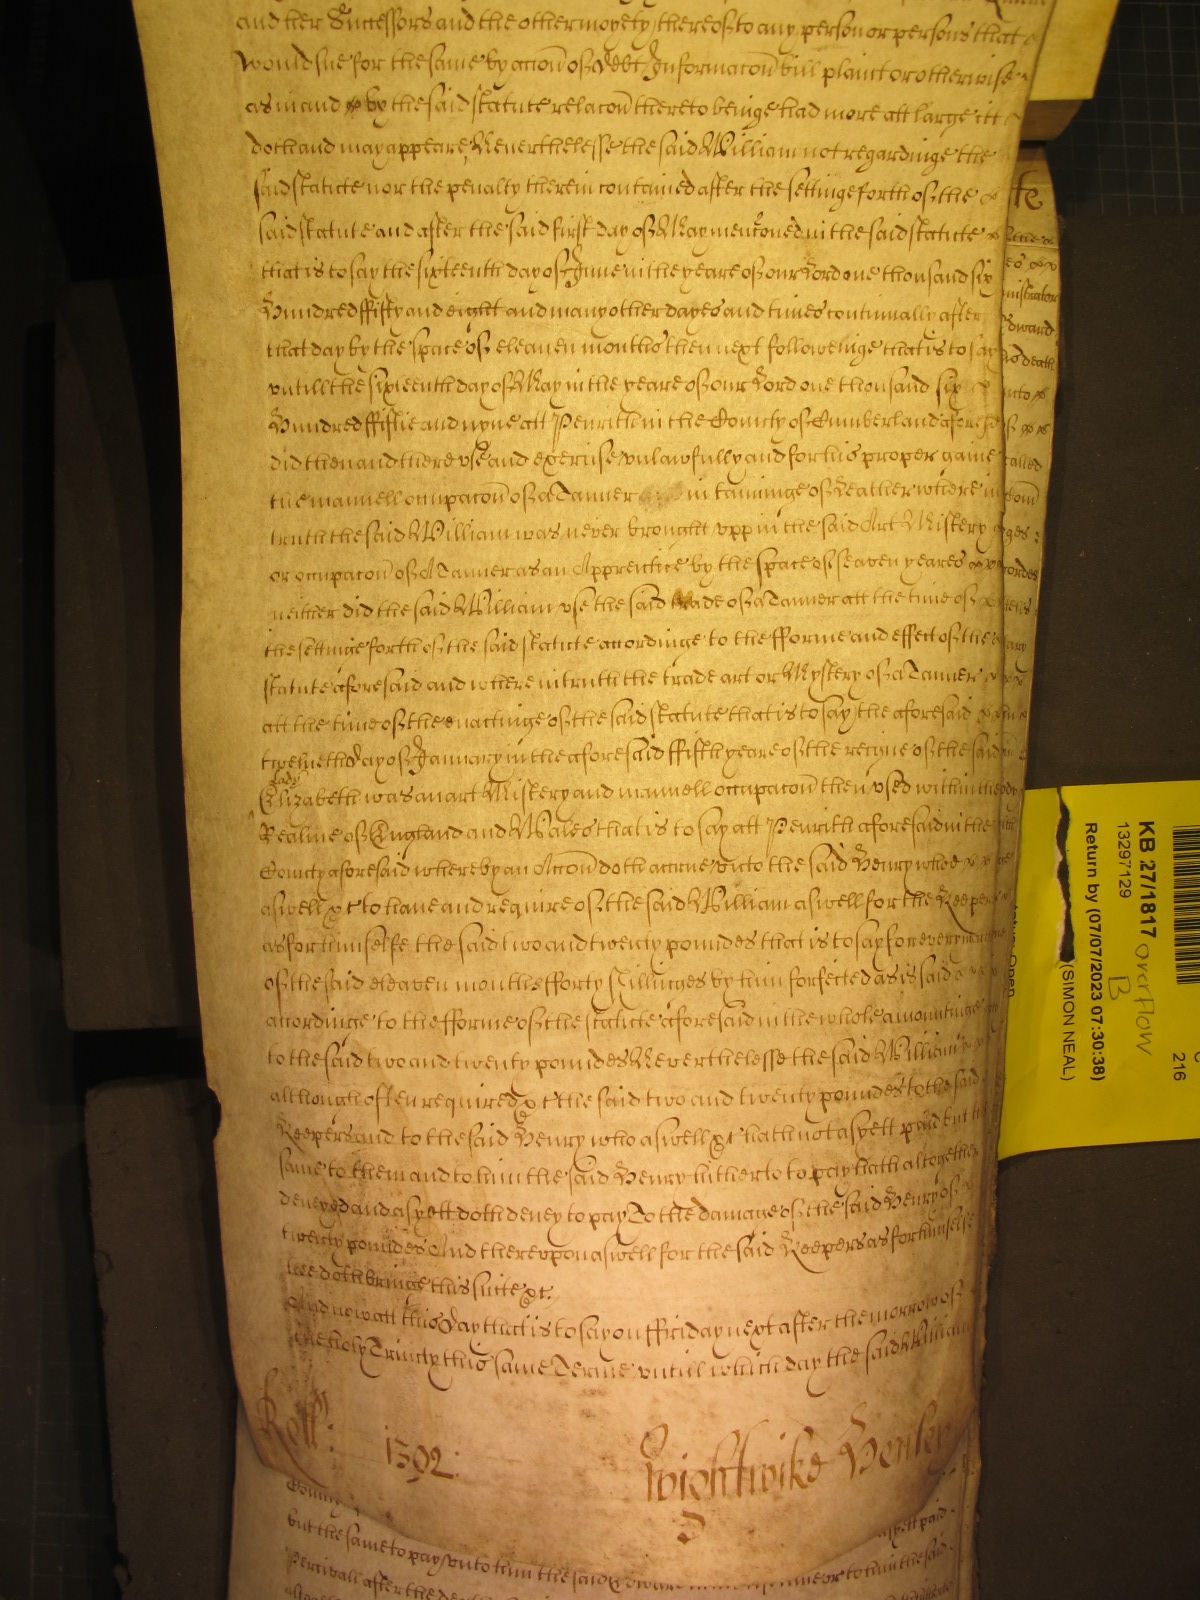 and her Successors and the other moyety thereof to any person or persons that
would sue for the same by accon of Debt Informacon bill plaint or otherwise
as in and by the said statute relacon thereto beinge had more att large itt
doth and may appeare, Neverthelesse the said William not regardinge the
said statute nor the penalty therein contained after the settinge forth of the
said statute and after the said first day of May menconed in the said statute
that is to say the sixteenth day of June in the yeare of our Lord one thousand six
Hundred ffifty and eight and many other dayes and times continually after
that day by the space of eleaven months then next followeinge that is to say
untill the sixteenth day of May in the yeare of our Lord one thousand six
Hundred ffiftie and nyne att Penrith in the County of Cumberland aforesd
did then and there use and exercise unlawfully and for his proper gaine
the manuell occupacon of a Tanner in tanninge of Leather where in
truth the said William was never brought upp in the said Art Mistery
or occupacon of A Tanner as an Apprentice by the space of seaven yeares
neither did the said William use the said trade of a Tanner att the time of
the settinge forth of the said statute accordinge to the fforme and effect of the
statute aforesaid and where in truth the trade art or Mystery of a Tanner
att the time of the enactinge of the said statute that is to say the aforesaid
twelueth day of January in the aforesaid ffifth yeare of the reigne of the said
Lady
Elizabeth was an art Mistery and manuell occupacon then used within the
Realme of England and Wales that is to say att Penrith aforesaid in the
County aforesaid whereby an Accon doth accrue unto the said Henry whoe
aswell &c to have and require of the said William aswell for the Keepers
as for himselfe the said two and twenty poundes that is to say for every
of the said eleaven months fforty shillinges by him forfected as is said
accordinge to the fforme of the statute aforesaid in the whole amountinge
to the said two and twenty poundes Neverthelesse the said William
although often required &c the said two and twenty poundes to the said
Keepers and to the said Henry who aswell &c hath not as yett paid but the
same to them and to him the said Henry hitherto to pay hath altogether
denyed and as yett doth deney to pay To the damage of the said Henry of
twenty poundes And thereupon aswell for the said Keepers as for himselfe
hee doth bringe this suite &c.
And now att this day that is to say on ffriday next after the morrow of
the holy Trinity this same Terme untill which day the said William
Roll: 1392: Wightwike Henley
County
but the same to pay unto him the said aswell paid
Percivall after the or to him the said
KB 27/1817 overflow
13297129 B
Return by (07/07/2023 07:30:38)
(SIMON NEAL)
216
Open